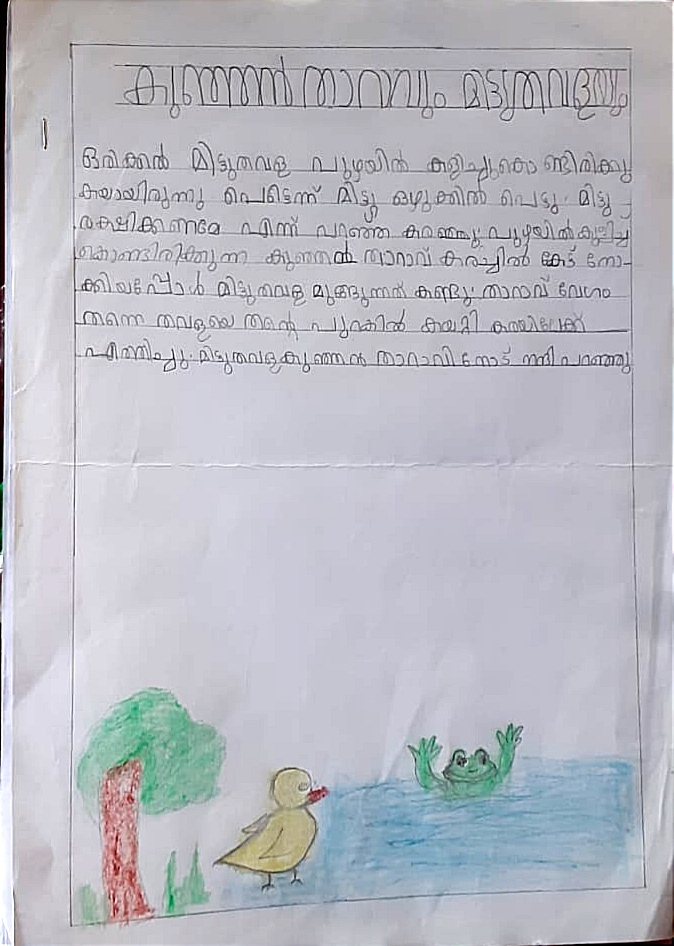 കുഞ്ഞൻ താറാവും മിട്ടുതവളയും
ഒരിക്കൽ മിട്ടുതവള പുഴയിൽ കളിച്ചുകൊ ണ്ടിരിക്കു
കയായിരുന്നു പെട്ടെന്ന് മിട്ടു ഒഴുക്കിൽ പെട്ടു. മിട്ടു
രക്ഷിക്കണമേ എന്ന് പറഞ്ഞ കരഞ്ഞു. പുഴയിൽ കുളിച്ച
കൊണ്ടിരിക്കുന്ന കുഞ്ഞൻ താറാവ് കരച്ചിൽ കേട് നോ-
ക്കിയപ്പോൾ മിട്ടുതവള മുങ്ങുന്നത് കണ്ടു. താറാവ് വേഗം
തന്നെ തവളയെ തന്റെ പുറകിൽ കയറ്റി കരയിലേക്ക്
എത്തിച്ചു. മിട്ടുതവള കുഞ്ഞൻ താറാവി നോട് നന്ദി പറഞ്ഞു